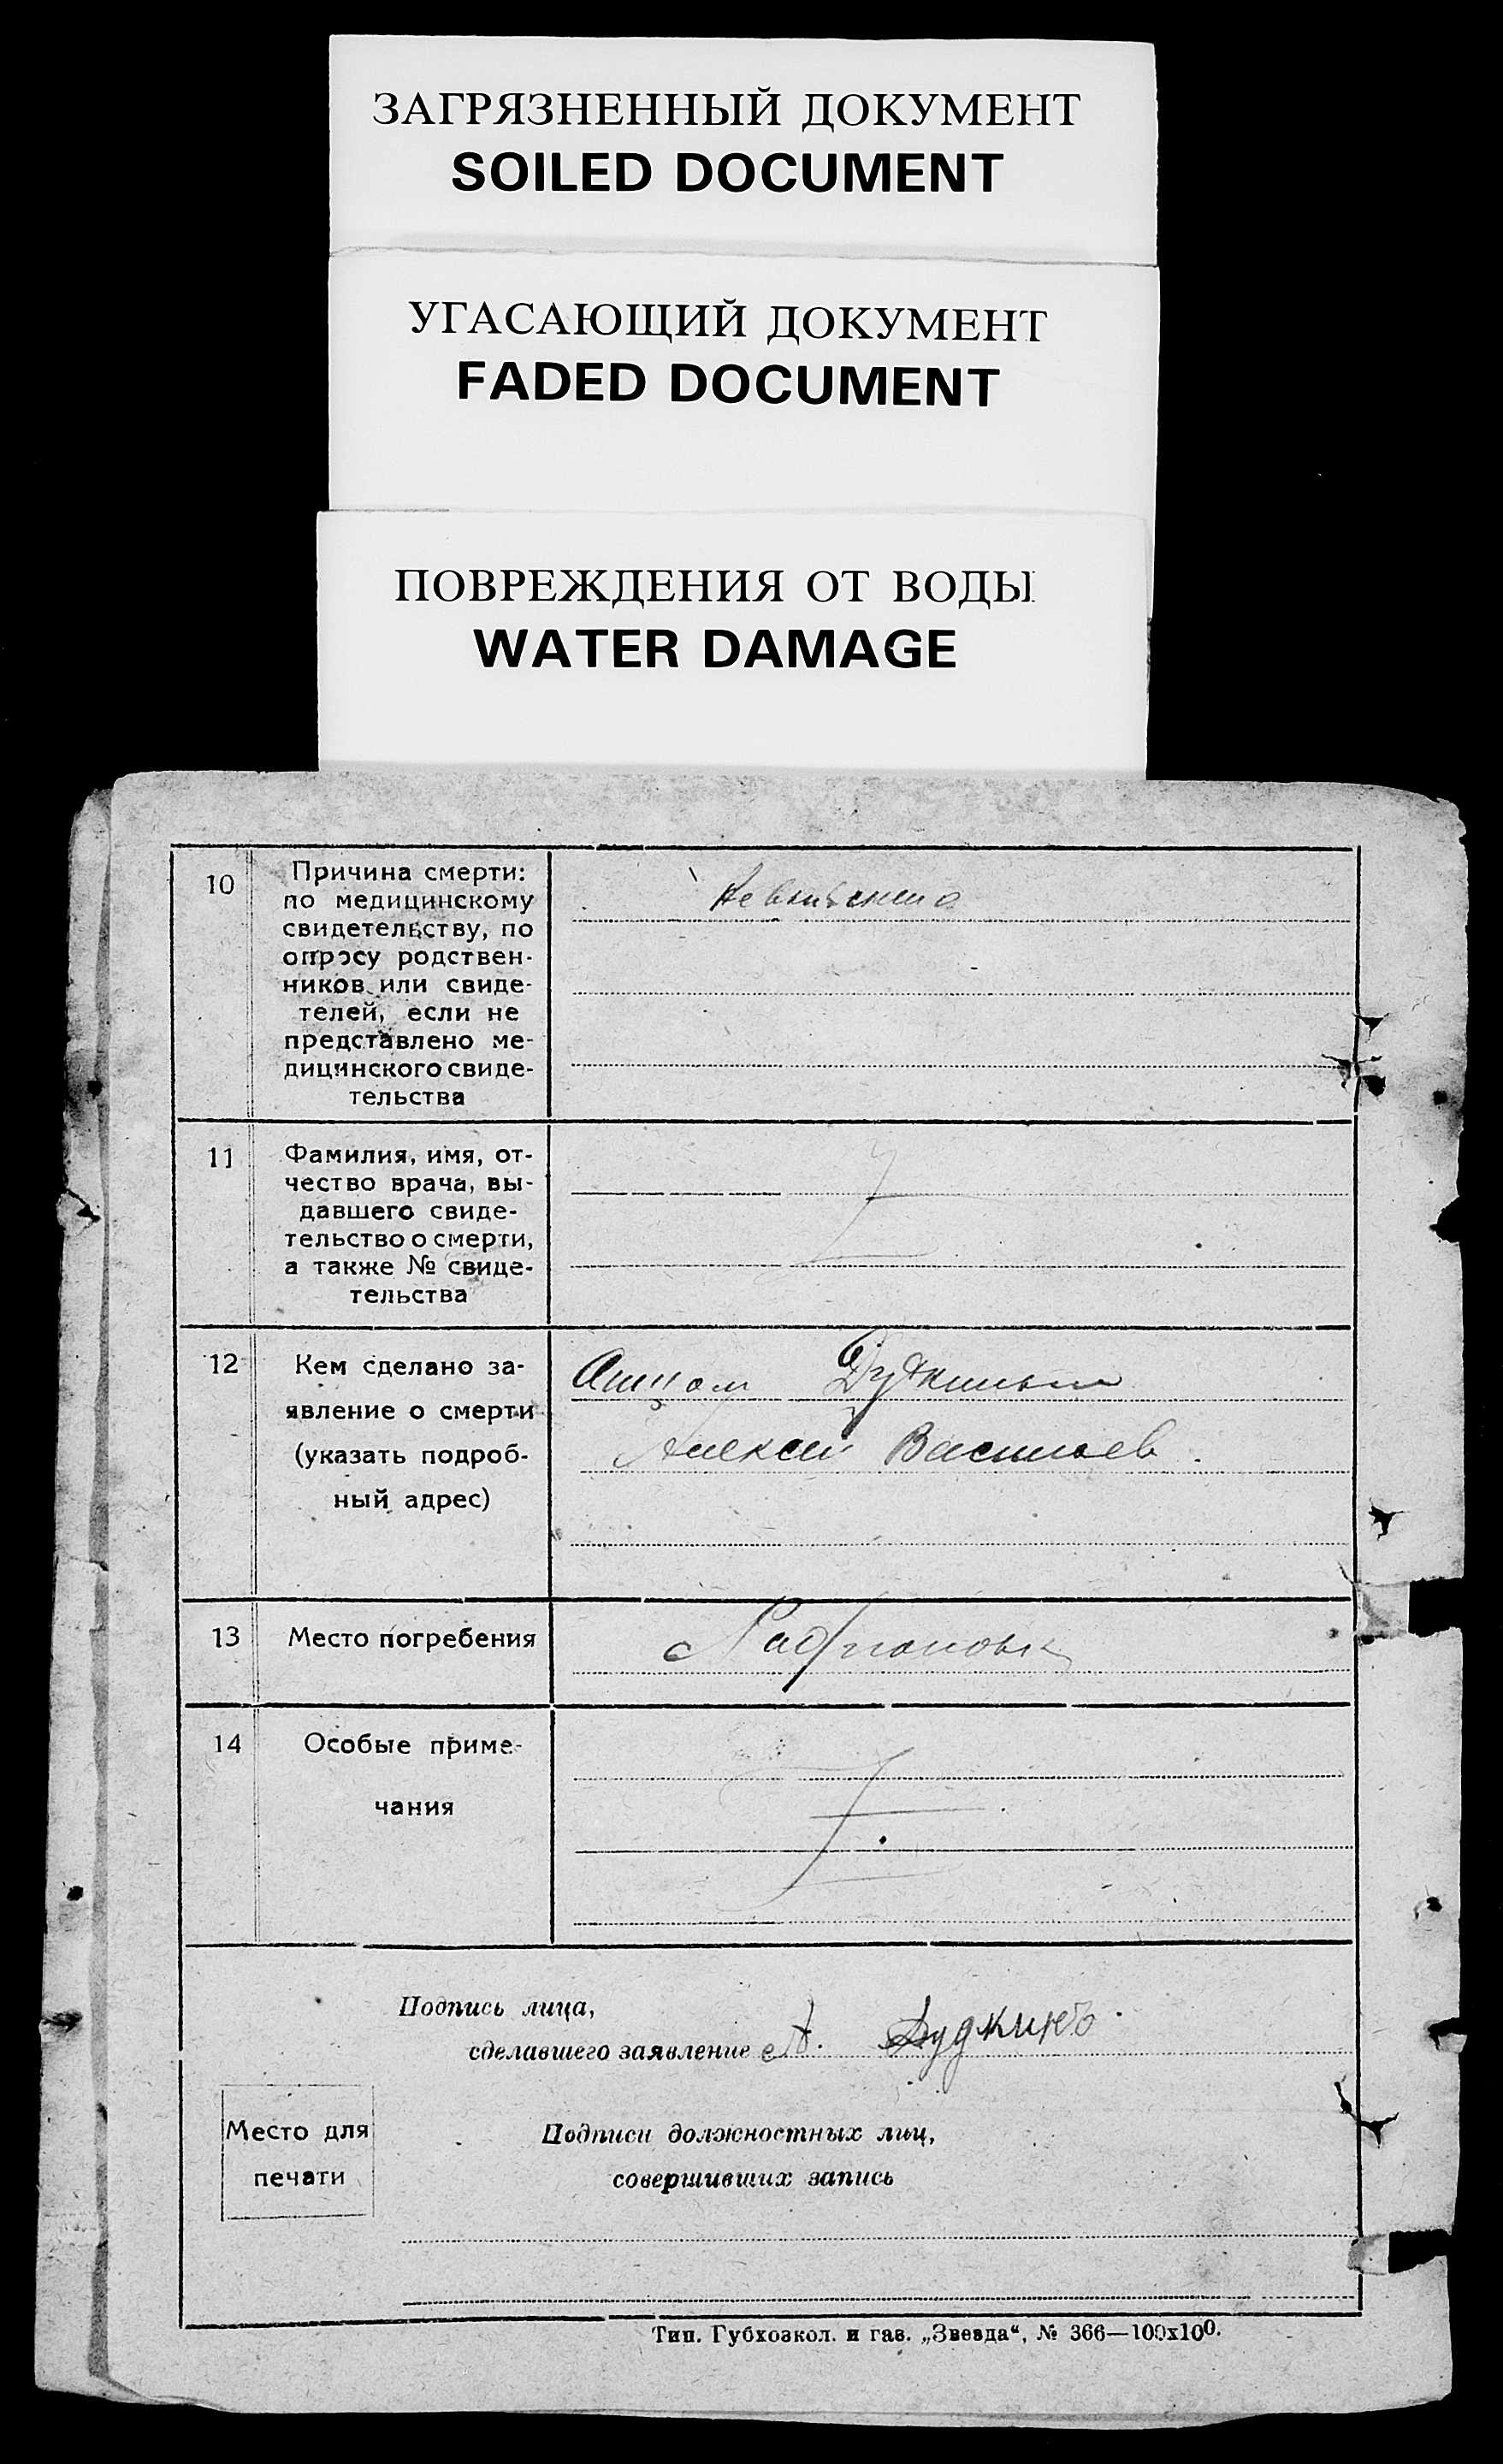 ЗАГРЯЗНЕННЫЙ ДОКУМЕНТ
SOILED DOCUMENT
УГАСАЮЩИЙ ДОКУМЕНТ
FADED DOCUMENT
ПОВРЕЖДЕНИЯ ОТ ВОДЫ
WATER DAMAGE
10
Причина смерти:
по медицинскому
свидетельству, по
опросу родствен-
ников или свиде-
телей, если не
представлено ме-
дицинского свиде-
тельства
Не выяснено
11
Фамилия, имя, от-
чество врача, вы-
давшего свиде-
тельство о смерти,
а также № свиде-
тельства
12
Кем сделано за-
явление о смерти
(указать подроб-
ный адрес)
Дудкиным
Алексей Васильев.
13
Место погребения
14
Особые приме-
чания
Подпись лица,
сделавшего заявление А. Дудкинъ
Место для
печати
Подписи должностных лиц,
совершивших запись
Тип. Губхозкол. и газ. „Звезда“, № 366—100х100.